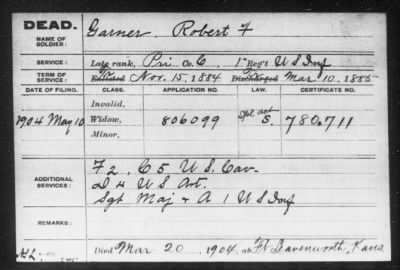 DEAD.
NAME OF SOLDIER:
Garner, Robert F
SERVICE:
Late rank, Pri Co. C, 1" Reg't U S Inf
TERM OF SERVICE:
Enlisted Nov. 15, 1884 Discharged Mar 10, 1885
DATE OF FILING. CLASS. APPLICATION NO. LAW. CERTIFICATE NO.
Invalid,
1904 May 10 Widow, 806099 Spl act S. 780.711
Minor,
ADDITIONAL SERVICES:
F 2, C 5 U. S. Cav.
D 4 U S Art.
Sgt Maj & A 1 U S Inf
REMARKS:
Died Mar 20, 1904, at Ft Leavenworth, Kans